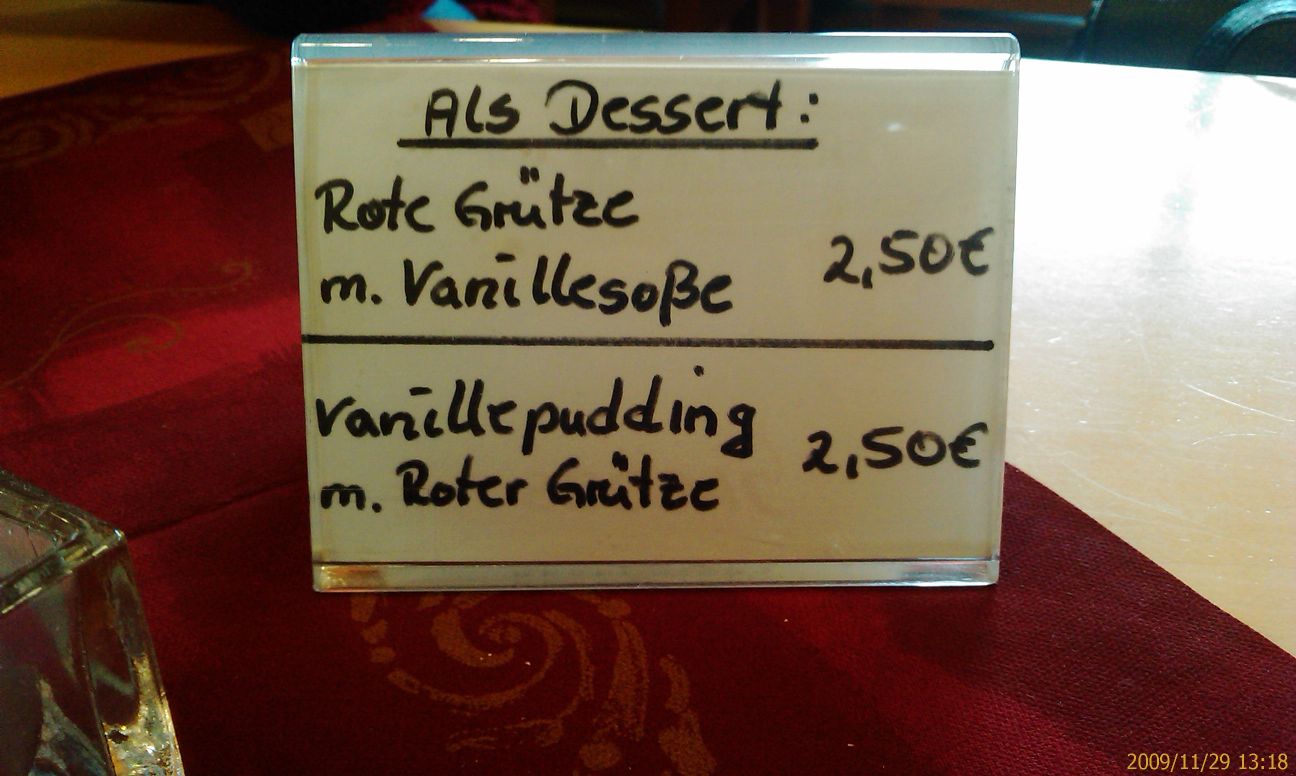 Als Dessert:
Rote Grütze
m. Vanillesoße 2,50€
Vanillepudding
m. Roter Grütze 2,50€
2009/11/29 13:18